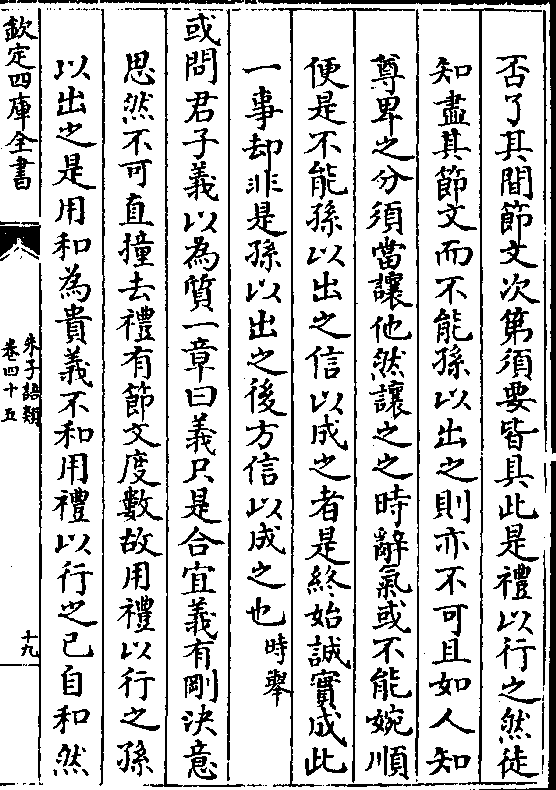 否了其間節文次第須要皆具此是禮以行之然徒
知盡其節文而不能孫以出之則亦不可且如人知
尊卑之分須當讓他然讓之之時辭氣或不能婉順
便是不能孫以出之信以成之者是終始誠實成此
一事却非是孫以出之後方信以成之也時舉
或問君子義以為質一章曰義只是合宜義有剛決意
思然不可直撞去禮有節文度數故用禮以行之孫
以出之是用和為貴義不和用禮以行之已自和然
欽定四庫全書
朱子語類
卷四十五
十九